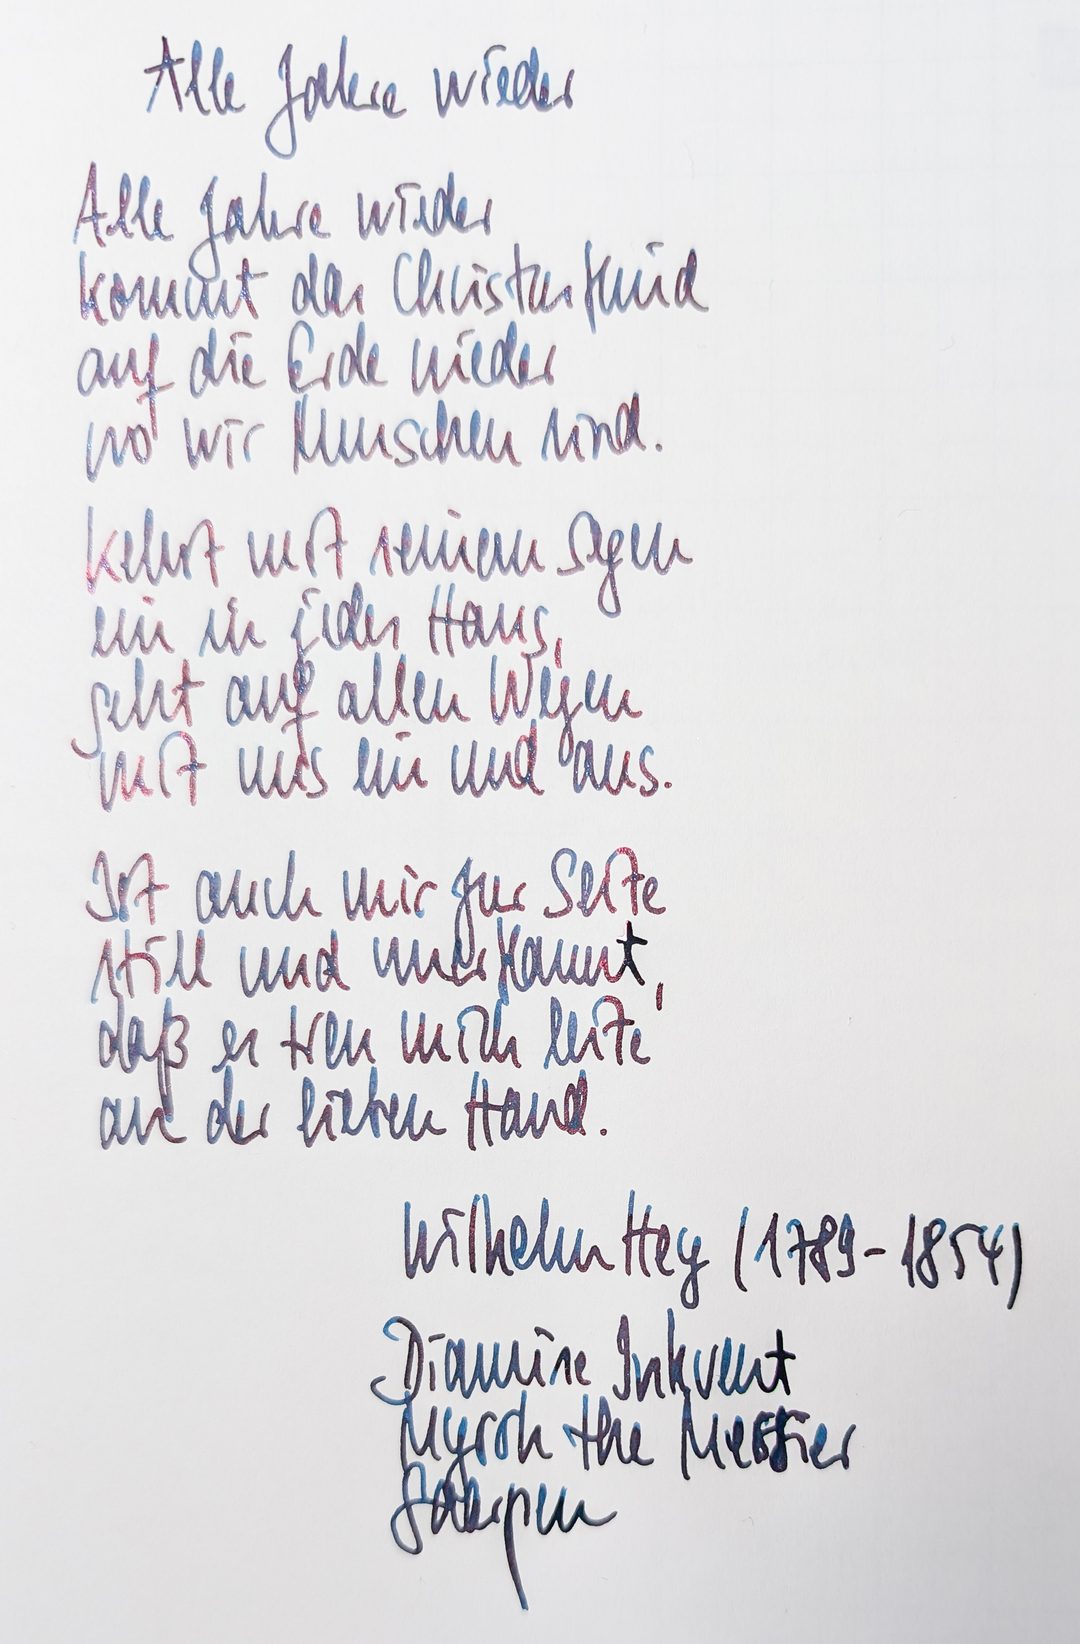 Alle Jahre wieder
Alle Jahre wieder
kommt das Christuskind
auf die Erde nieder
wo wir Menschen sind.
Kehrt mit seinem Segen
ein in jedes Haus,
geht auf allen Wegen
mit uns ein und aus.
Ist auch mir zur Seite
still und unerkannt,
daß er treu mich leite
an der lieben Hand.
Wilhelm Hey (1789-1854)
Diamine Inkvent
Myrrh the Merrier